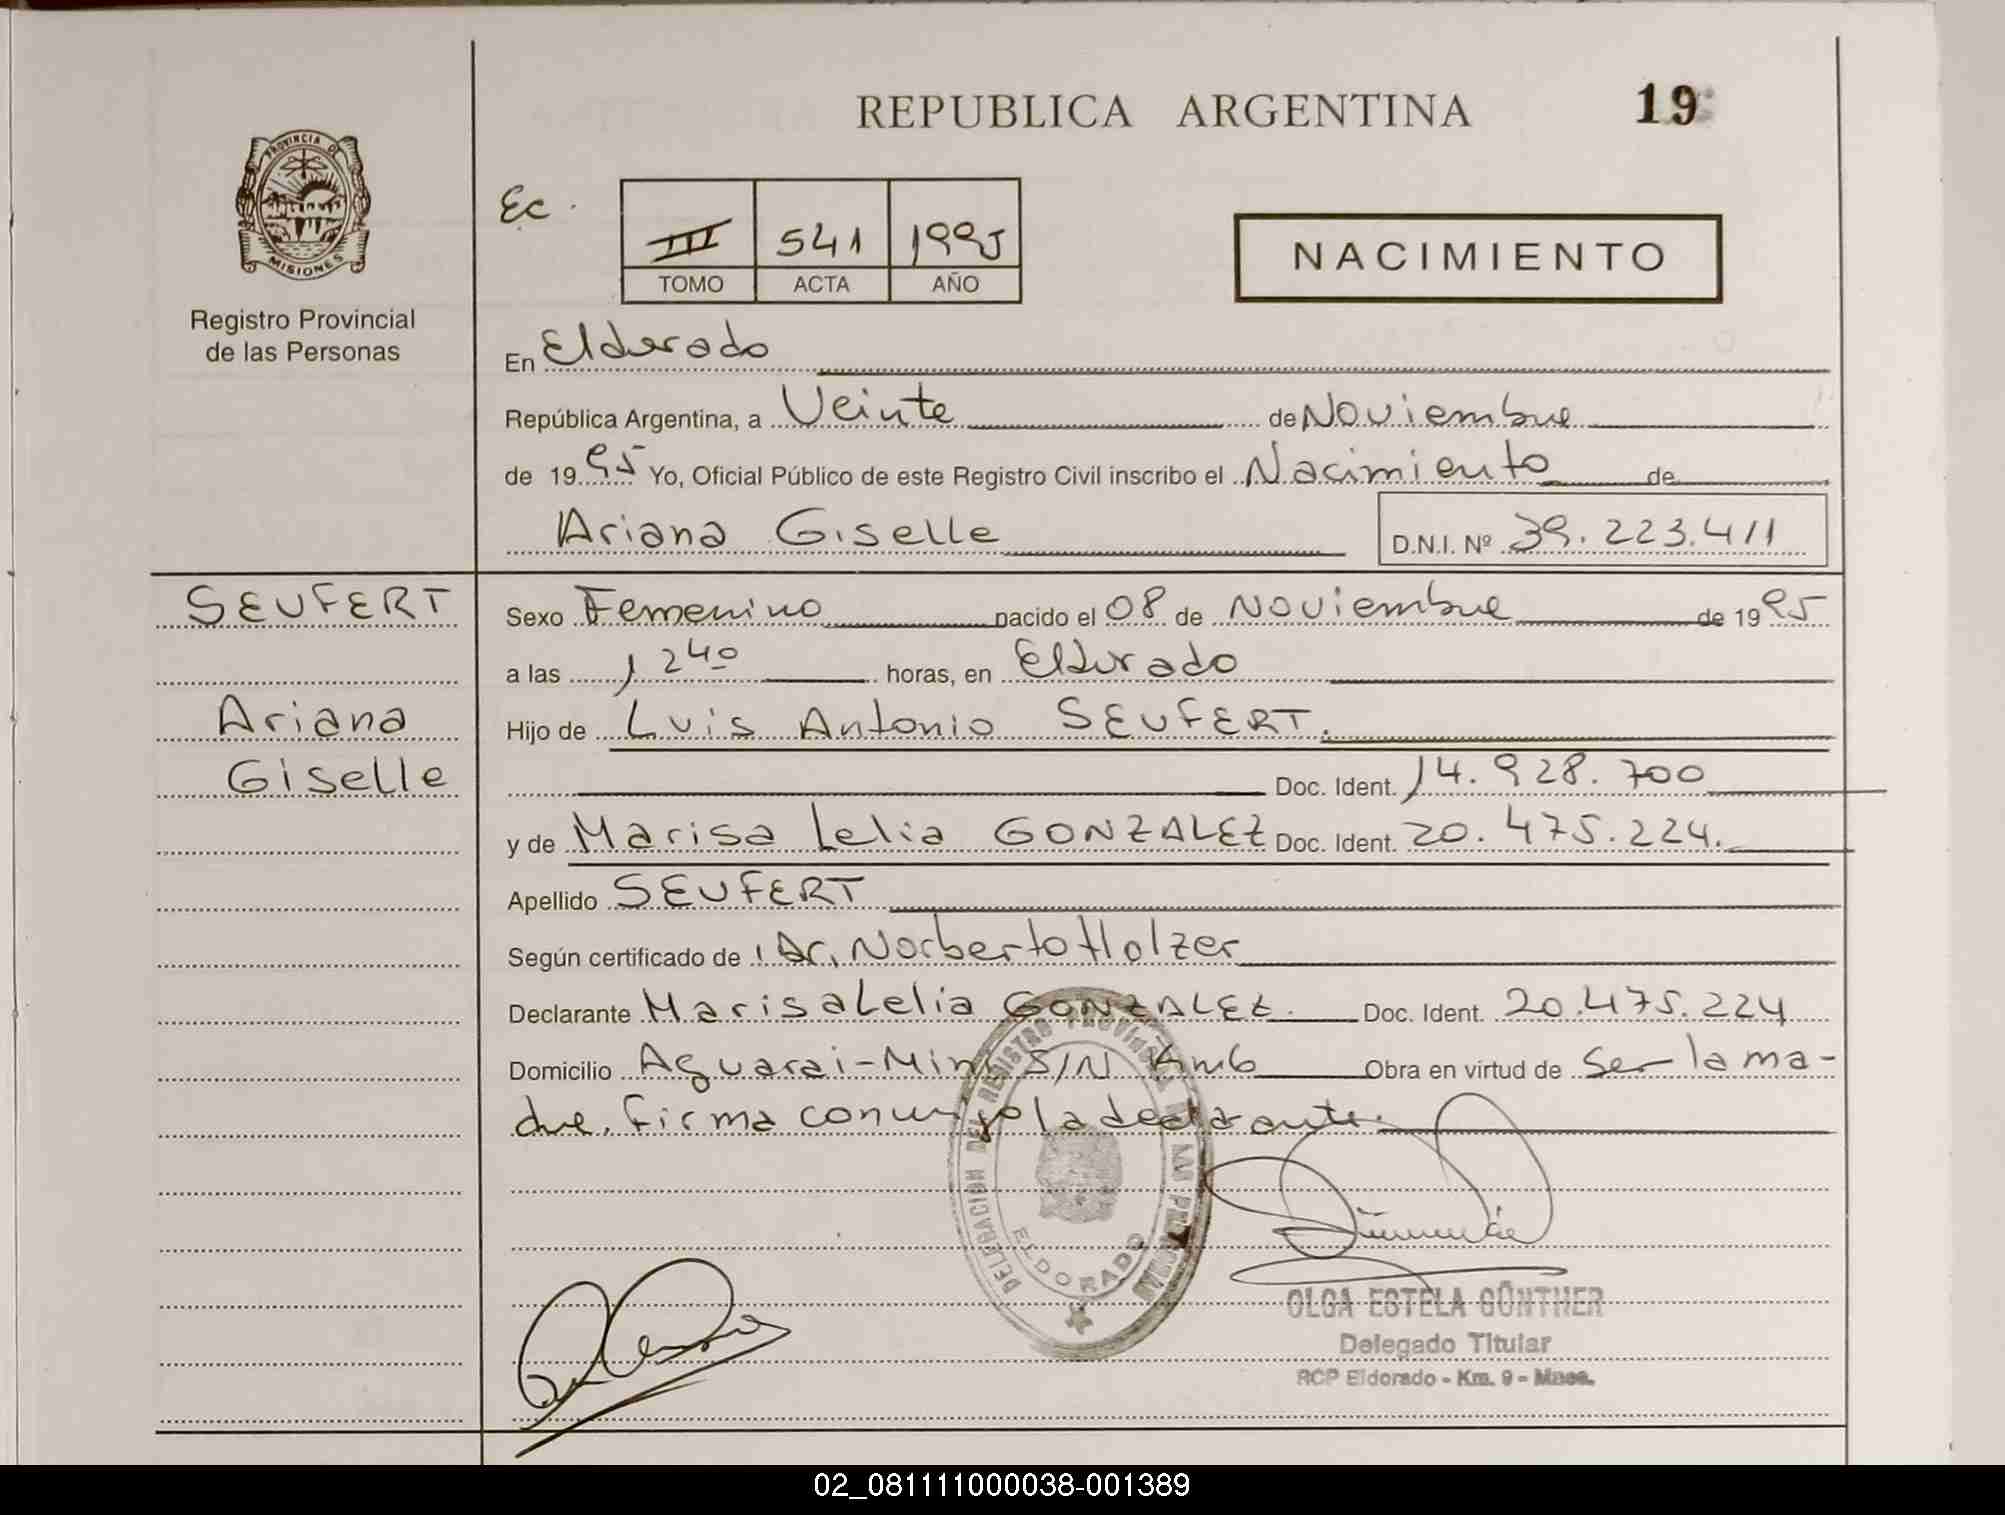 REPUBLICA ARGENTINA 19
PROVINCIA DE
MISIONES
Registro Provincial
de las Personas
Ec.
III 541 1995
TOMO ACTA AÑO
NACIMIENTO
En Eldorado
República Argentina, a Veinte de Noviembre
de 1995 Yo, Oficial Público de este Registro Civil inscribo el Nacimiento de
Ariana Giselle D.N.I. Nº 39.223.411
SEUFERT
Ariana
Giselle
Sexo Femenino nacido el 08 de Noviembre de 1995
a las 1240 horas, en Eldorado
Hijo de Luis Antonio SEUFERT.
Doc. Ident. 14.928.700
y de Marisa Lelia GONZALEZ Doc. Ident. 20.475.224.
Apellido SEUFERT
Según certificado de Dr. Norberto Holzer
Declarante Marisa Lelia GONZALEZ. Doc. Ident. 20.475.224
Domicilio Aguarai-Mini S/N Km6 Obra en virtud de Ser la ma-
dre. Firma conmigo la declarante.
DELEGACION DEL REGISTRO PROVINCIAL DE LAS PERSONAS
ELDORADO
OLGA ESTELA GÜNTHER
Delegado Titular
RCP Eldorado - Km. 9 - Mnes.
02_081111000038-001389